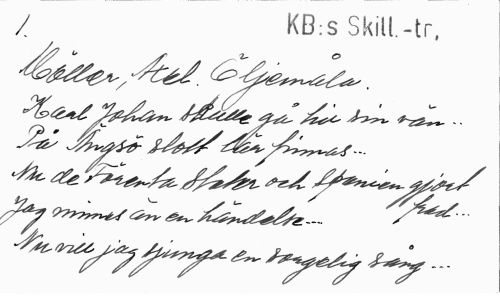 1.
KB:s Skill.-tr.
Möller, Axel. Öljemåla.
Karl Johan skulle gå till sin vän..
På Tingsö slott lär finnas...
Nu de Förenta Stater och Spanien gjort
fred...
Jag minnes än en händelse...
Nu vill jag sjunga en sorgelig sång...